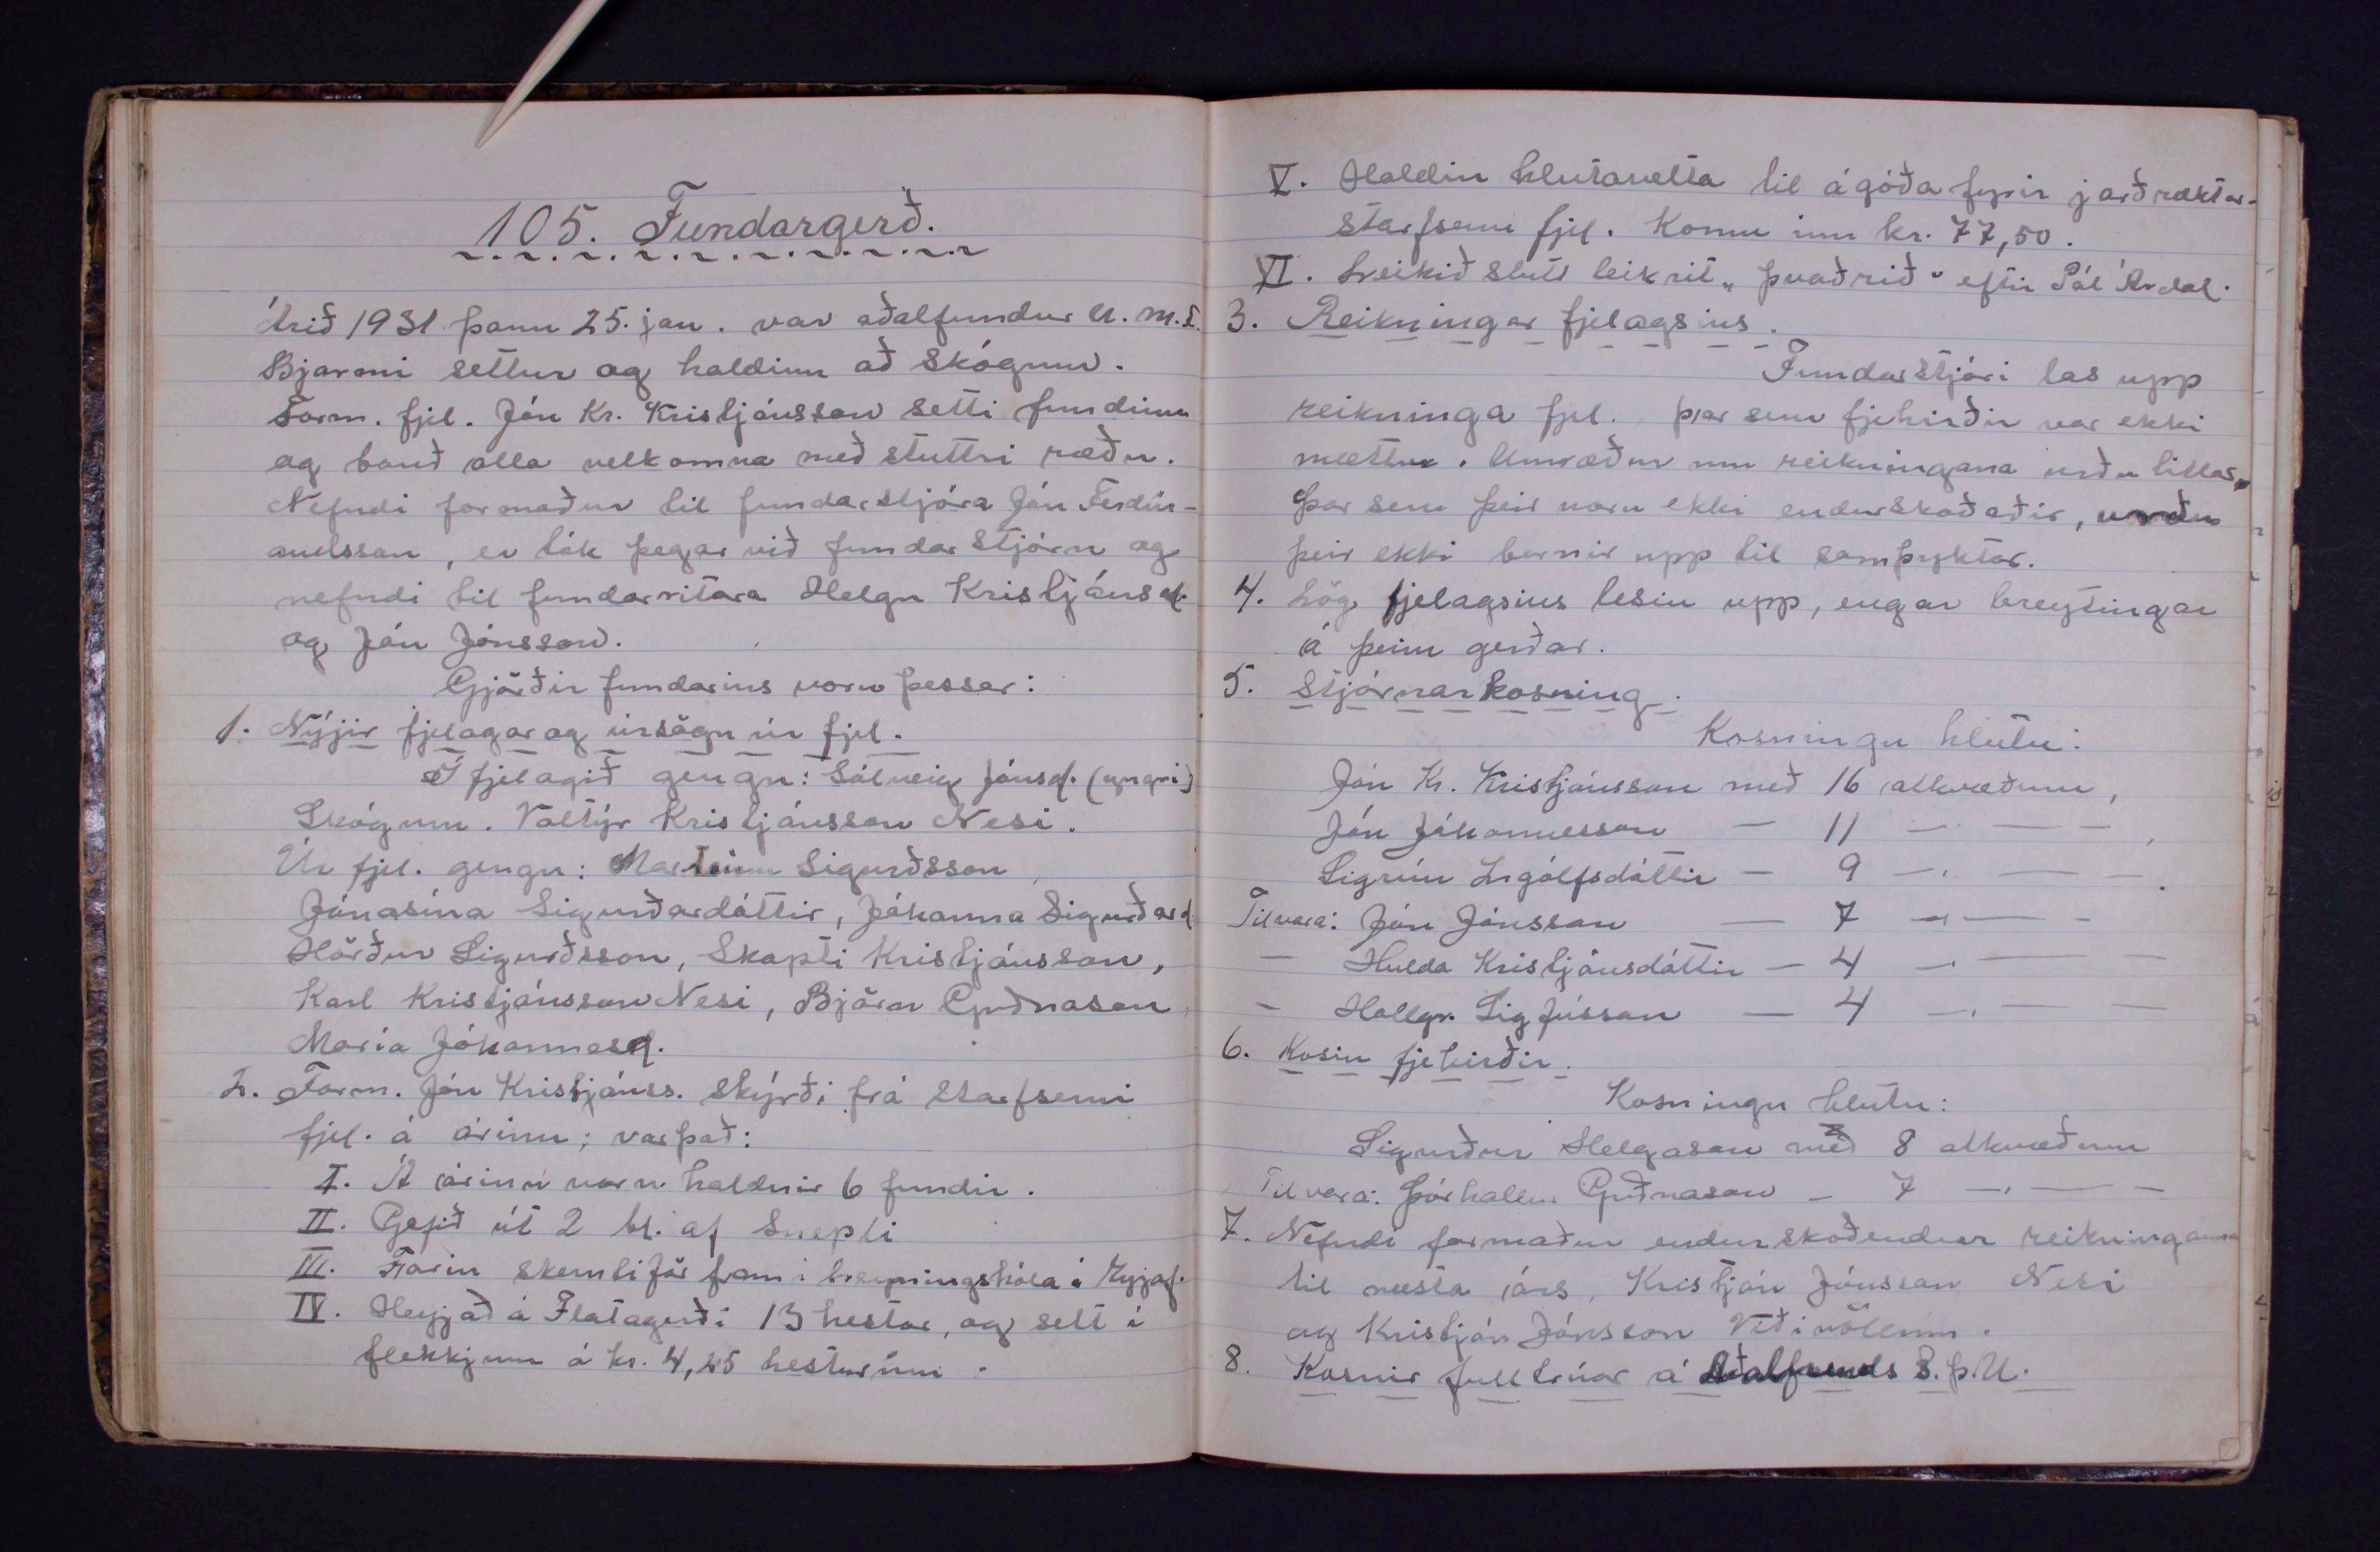 105. Fundargerð.
Árið 1931 þann 25. jan. var aðalfundur U.M.F.
Bjarmi settur og haldinn að Skógum.
Form. fjel. Jón Kr. Kristjánsson setti fundinn
og bauð alla velkomna með stuttri ræðu.
Nefndi formaður til fundarstjóra Jón Ferdín-
andsson, er tók þegar við fundarstjórn og
nefndi til fundarritara Helgu Kristjánsd.
og Jón Jónsson.
Gjörðir fundarins voru þessar:
1. Nýjir fjelagar og úrsögn úr fjel.
Í fjelagið gengu: Sólveig Jónsd. (yngri)
Skógum. Valtýr Kristjánsson Nesi.
Úr fjel. gengu: Marteinn Sigurðsson,
Jónasína Sigurðardóttir, Jóhanna Sigurðard
Hörður Sigurðsson, Skapti Kristjánsson,
Karl Kristjánsson Nesi, Björn Guðnason,
María Jóhannesd.
2. Form. Jón Kristjánss. skýrði frá starfsemi
fjel. á árinu; var það:
I. Á árinu voru haldnir 6 fundir.
II. Gefið út 2 bl. af Snepli
III. Farin skemtiför fram í Leyningshóla í Eyjaf.
IV. Heyjað á Flatagerði 13 hestar, og selt í
flekkjum á kr. 4,25 hesturinn.
V. Haldin hlutavelta til ágóða fyrir jarðræktar-
starfsemi fjel. Komu inn kr. 77,50.
VI. Leikið stutt leikrit „Þvaðrið" eftir Pál Árdal.
3. Reikningar fjelagsins.
Fundarstjóri las upp
reikninga fjel. þar sem fjehirðir var ekki
mættur. Umræður um reikningana urðu litlar,
Þar sem þeir voru ekki endurskoðaðir, urðu
þeir ekki bornir upp til samþyktar.
4. Lög fjelagsins lesin upp, engar breytingar
á þeim gerðar.
5. Stjórnarkosning.
Kosningu hlutu:
Jón Kr. Kristjánsson með 16 atkvæðum,
Jón Jóhannesson — 11 —. — —,
Sigrún Ingólfsdóttir — 9 —. — —.
Til vara: Jón Jónsson — 7 —. — —
— Hulda Kristjánsdóttir — 4 —. — —
— Hallgr. Sigfússon — 4 —. — —
6. Kosin fjehirðir.
Kosningu hlutu:
Sigurður Helgason með 8 atkvæðum
Til vara: Þórhallur Guðnason — 7 —. — —
7. Nefndi formaður endurskoðendur reikninganna
til næsta árs, Kristján Jónsson Nesi
og Kristján Jónsson Víðivöllum.
8. Kosnir fulltrúar á Aðalfunds S.Þ.U.